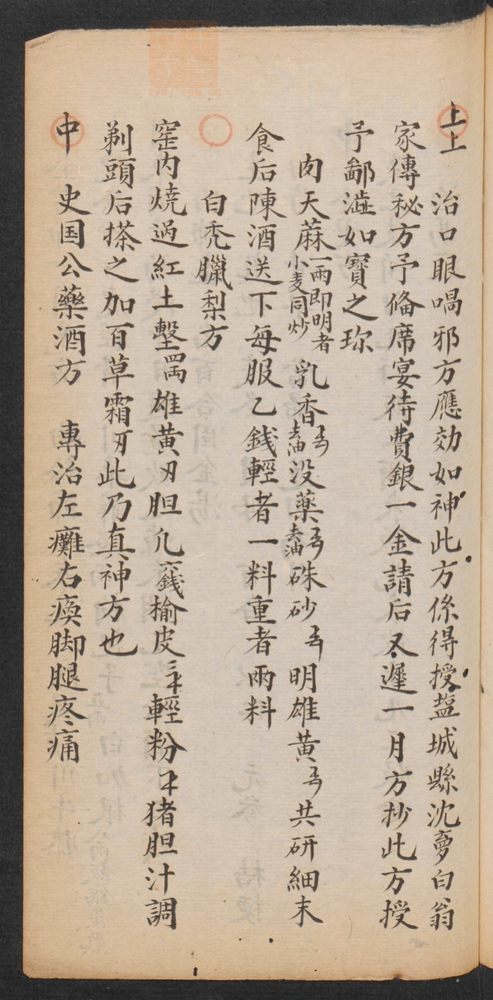 上上　治口眼喎邪方應効如神此方係得授盐城縣沈夢白翁
家傳秘方予俻席宴待費銀一金請后又遲一月方抄此方授
予鄙澁如寳之珎
肉天蔴一兩即明者小麦同炒乳香去油没藥去油硃砂明雄黄共研細末
食后陳酒送下每服乙錢輕者一料重者兩料
白禿臘梨方
窑内燒過紅土墼四兩雄黄胆凢榆皮輕粉猪胆汁調
剃頭后搽之加百草霜此乃真神方也
中　史国公藥酒方　專治左癱右瘓脚腿疼痛